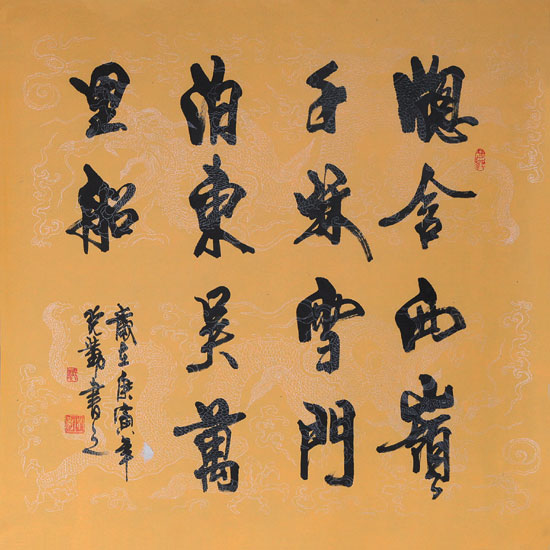 牕含西嶺
千秋雪門
泊東吳萬
里船
歲在庚寅年
書之